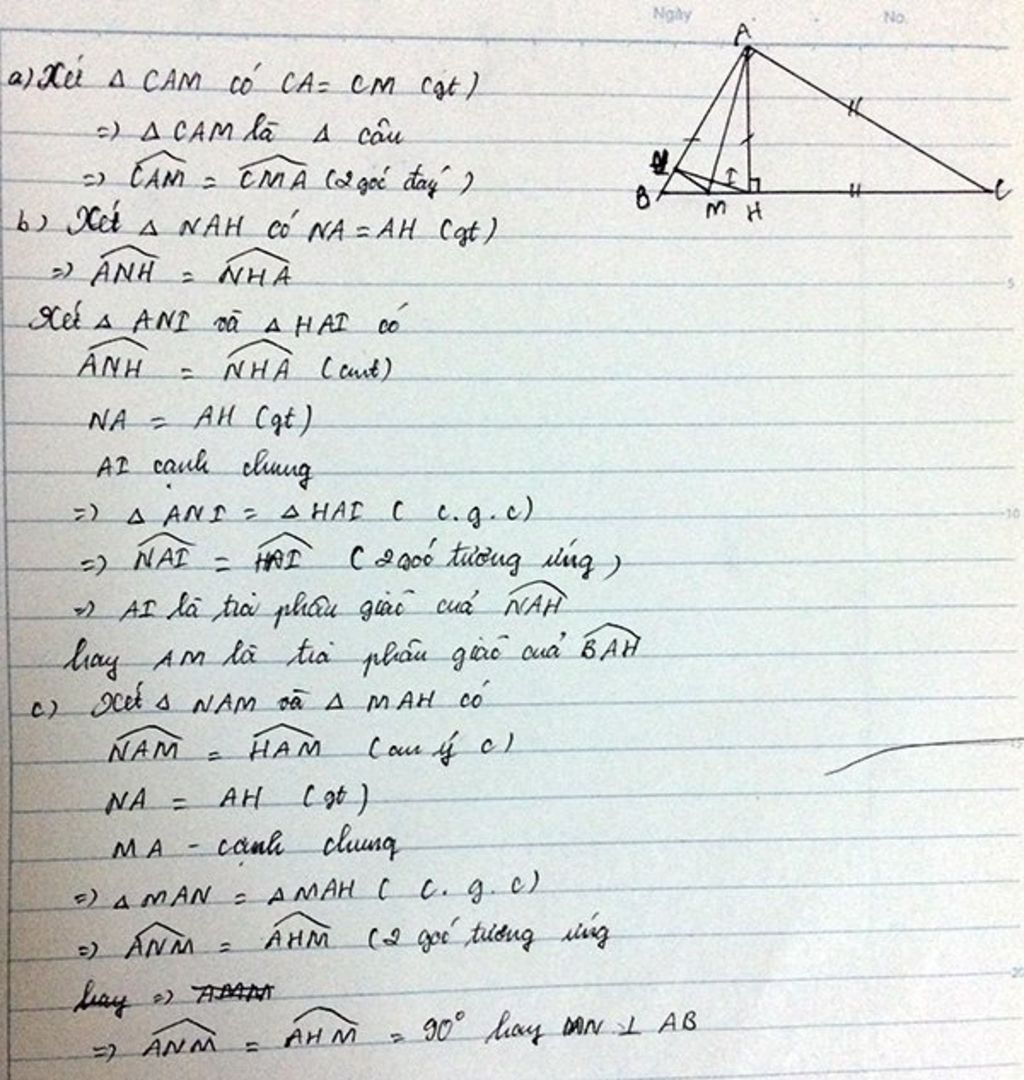 Ngày . . No.
A
a) Xét Δ CAM có CA = CM (gt)
=) Δ CAM là Δ cân
=) CAM = CMA (2 góc đáy)
N I
B M H C
b) Xét Δ NAH có NA = AH (gt)
=) ANH = NHA
Xét Δ ANI và Δ HAI có
ANH = NHA (cmt)
NA = AH (gt)
AI cạnh chung
=) Δ ANI = Δ HAI ( c.g.c)
=) NAI = HAI ( 2 góc tương ứng )
=) AI là tia phân giác của NAH
hay AM là tia phân giác của BAH
c) Xét Δ NAM và Δ MAH có
NAM = HAM ( ý c)
NA = AH (gt)
MA - cạnh chung
=) Δ MAN = Δ MAH ( c.g.c)
=) ANM = AHM (2 góc tương ứng
hay =) AMM
=) ANM = AHM = 90° hay MN ⊥ AB
5
10
15
20